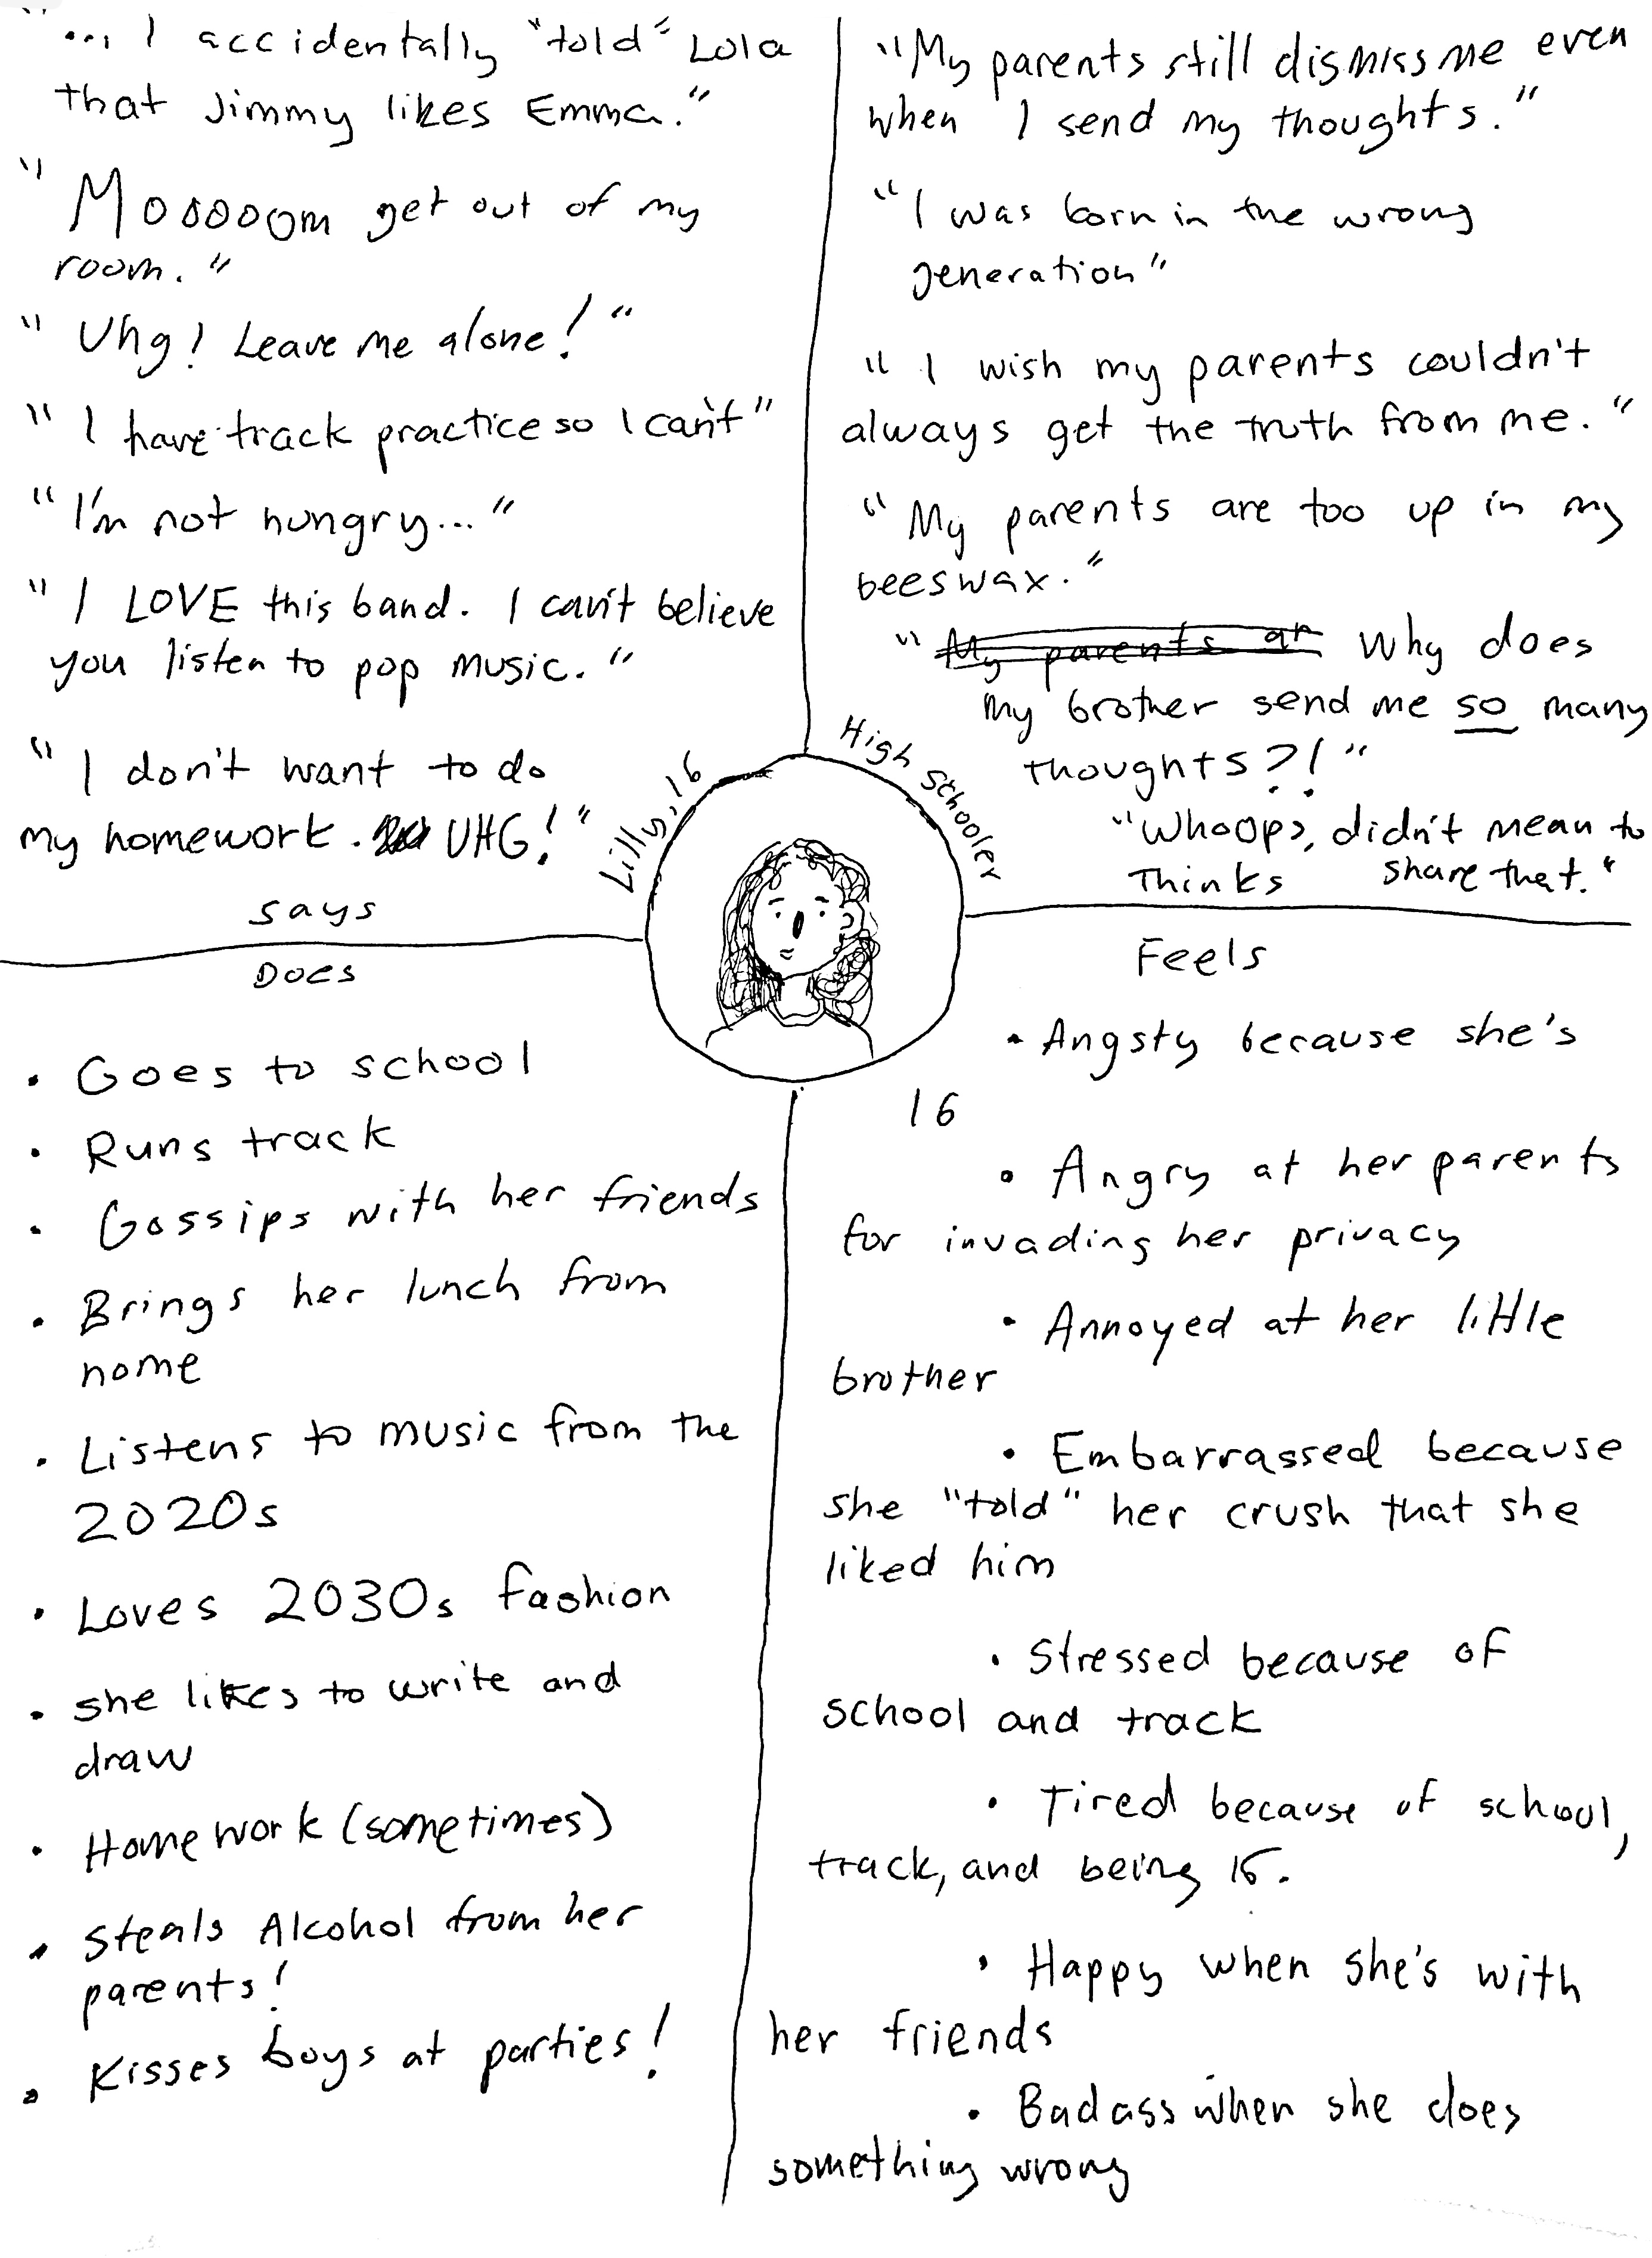 "... I accidentally "told" Lola
that Jimmy likes Emma."
"Mooooom get out of my
room."
"Uhg! Leave me alone!"
"I have track practice so I can't"
"I'm not hungry..."
"I LOVE this band. I can't believe
you listen to pop music."
"I don't want to do
my homework. UHG!"
Says
"My parents still dismiss me even
when I send my thoughts."
"I was born in the wrong
generation"
"I wish my parents couldn't
always get the truth from me."
"My parents are too up in my
beeswax."
"My parents ar Why does
my brother send me so many
thoughts?!"
"Whoops, didn't mean to
share that."
Thinks
Lilly, 16
High Schooler
Does
• Goes to school
• Runs track
• Gossips with her friends
• Brings her lunch from
home
• Listens to music from the
2020s
• Loves 2030s fashion
• she likes to write and
draw
• Homework (sometimes)
• Steals Alcohol from her
parents!
• Kisses boys at parties!
Feels
• Angsty because she's
16
• Angry at her parents
for invading her privacy
• Annoyed at her little
brother
• Embarrassed because
she "told" her crush that she
liked him
• Stressed because of
school and track
• Tired because of school,
track, and being 16.
• Happy when she's with
her friends
• Badass when she does
something wrong